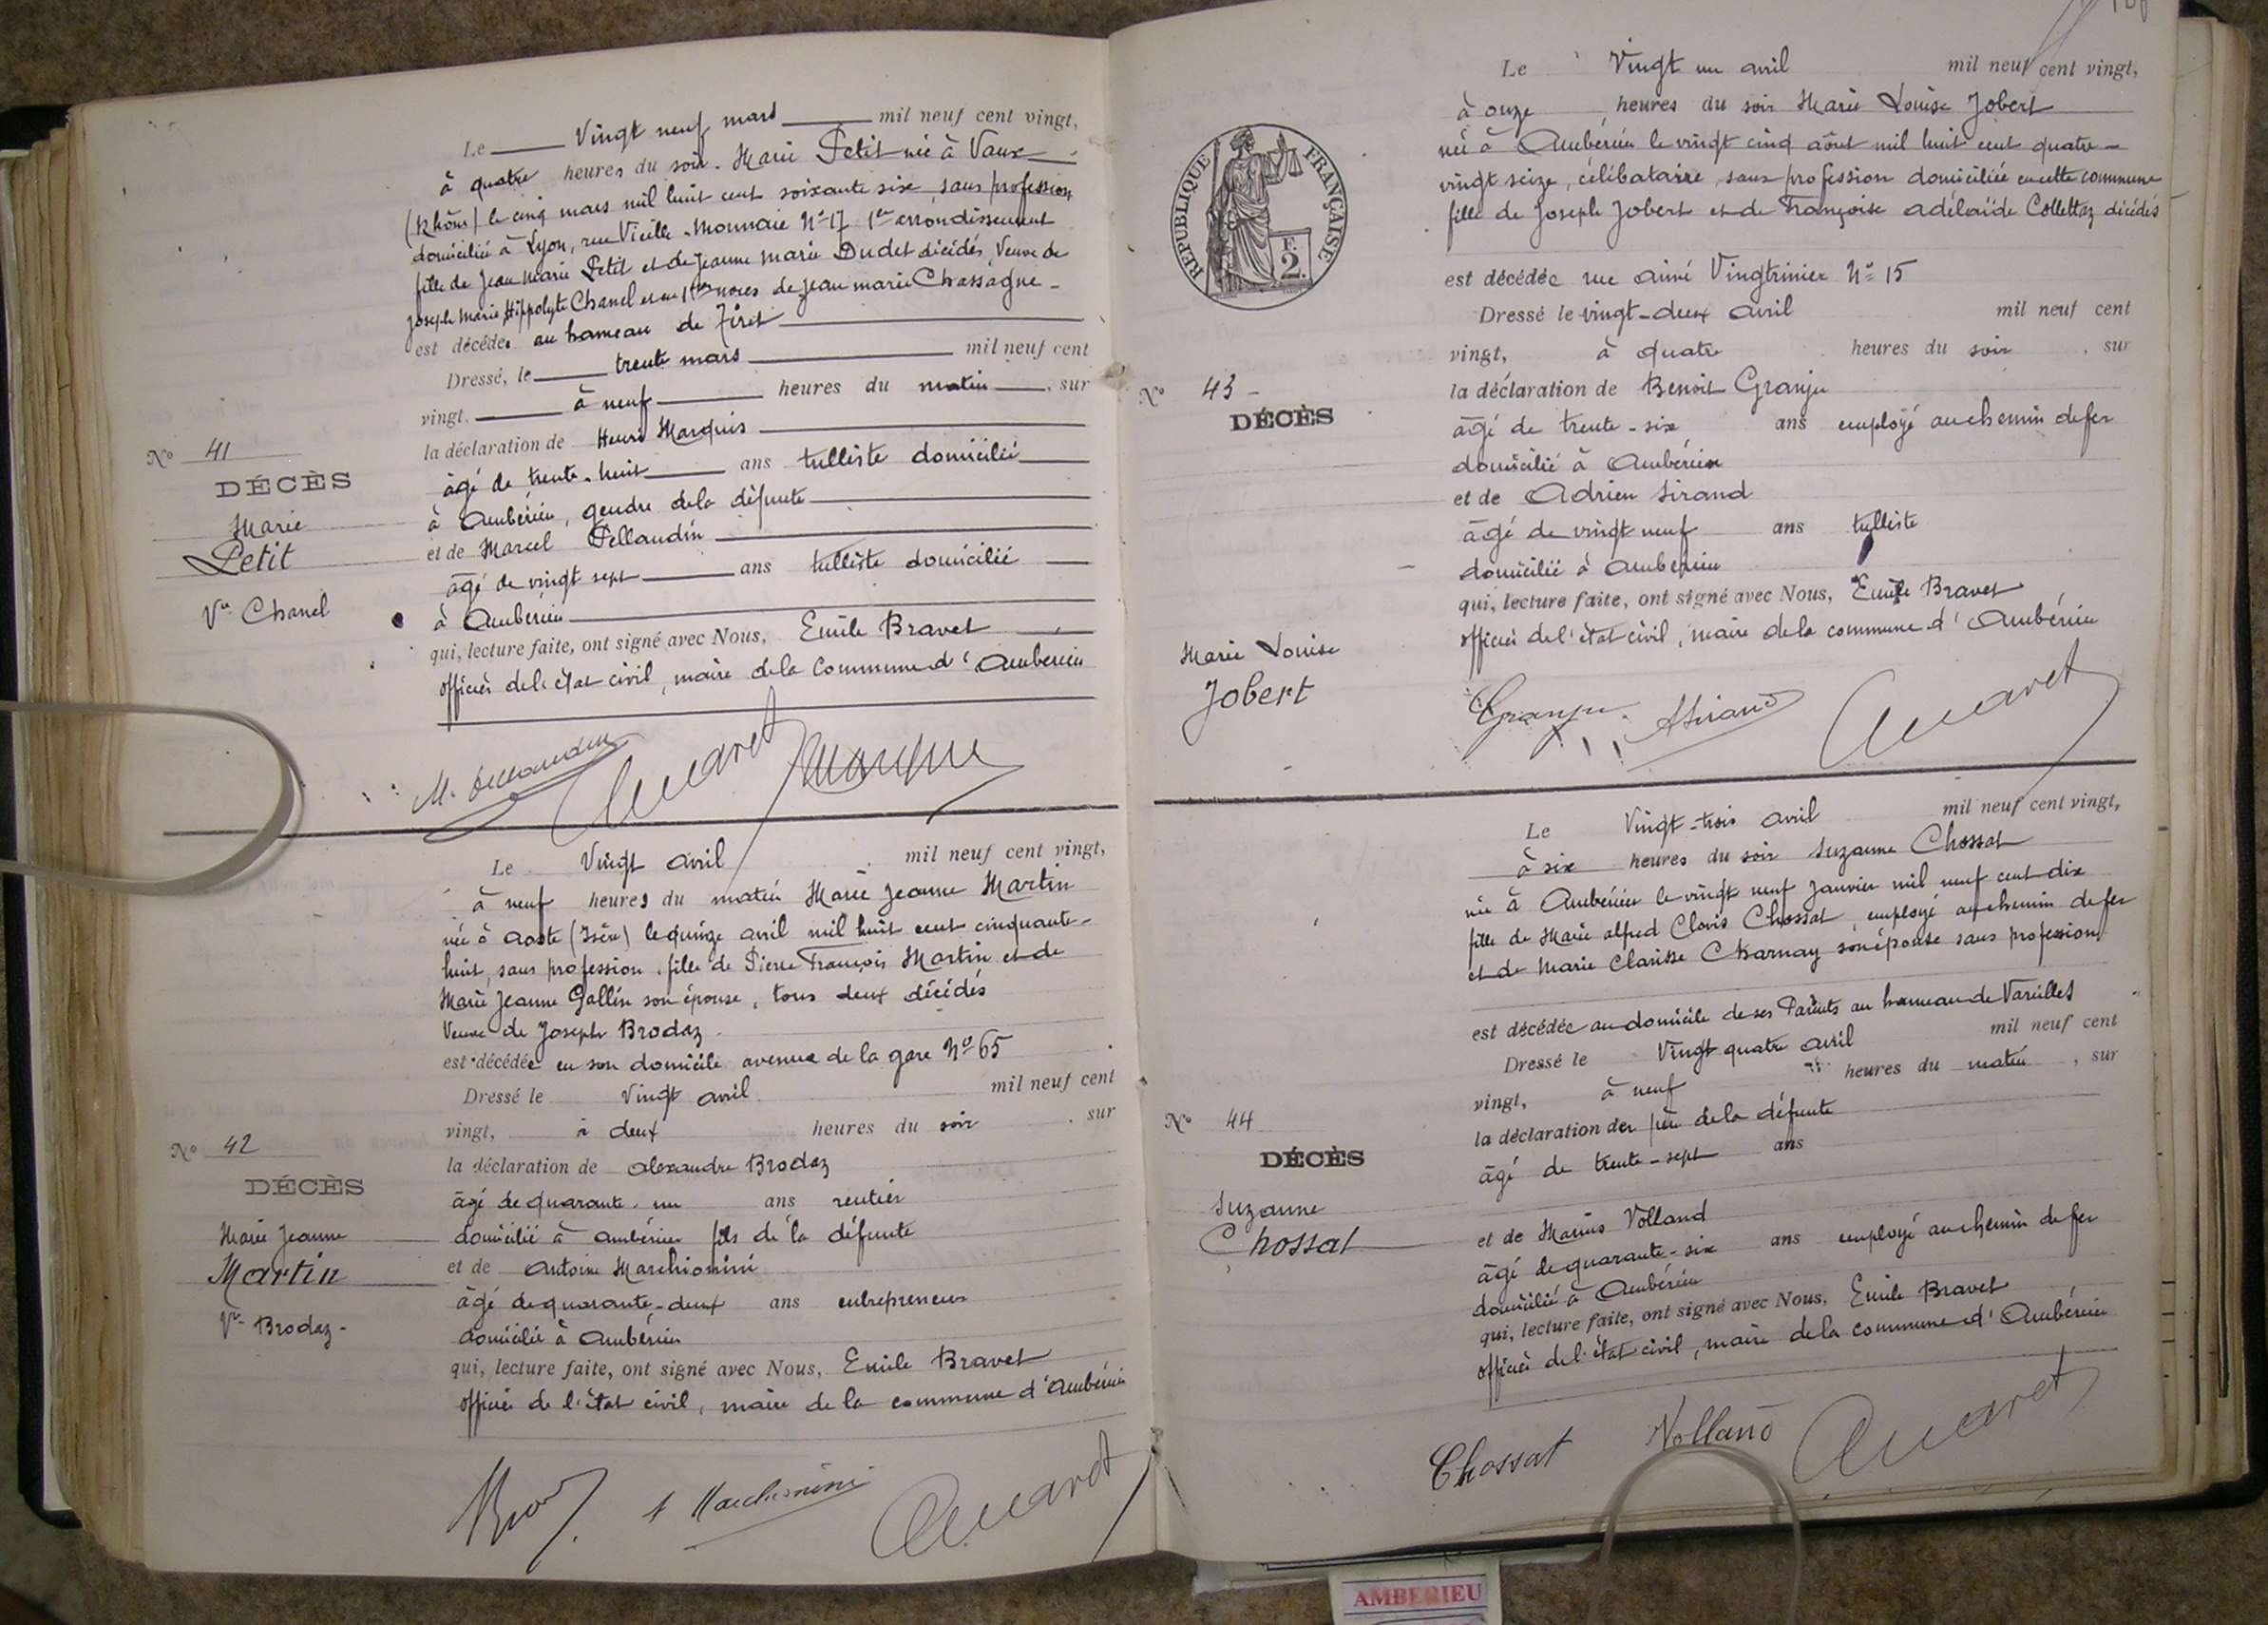 Le Vingt neuf mars mil neuf cent vingt,
à quatre heures du soir. Marie Petit née à Vaux
(Rhône) le cinq mars mil huit cent soixante six, sans profession
domiciliée à Lyon, rue Vieille-Monnaie N° 17 1er arrondissement
fille de Jean Marie Petit et de Jeanne Marie Dudet décédés, Veuve de
Joseph Marie Hippolyte Chanel et en 1ères noces de Jean Marie Chassagne -
est décédée au hameau de Tiret
Dressé, le trente mars mil neuf cent
vingt. à neuf heures du matin, sur
la déclaration de Henri Marquis
âgé de trente-huit ans tulliste domicilié
à Ambérieu, gendre de la défunte
et de Marcel Pellaudin
âgé de vingt sept ans tulliste domicilié
à Ambérieu
qui, lecture faite, ont signé avec Nous, Emile Bravet
officier de l'état civil, maire de la Commune d'Ambérieu
N° 41
DÉCÈS
Marie
Petit
Ve Chanel
Le Vingt avril mil neuf cent vingt,
à neuf heures du matin Marie Jeanne Martin
née à Aoste (Isère) le quinze avril mil huit cent cinquante-
huit, sans profession, fille de Pierre François Martin et de
Marie Jeanne Gallin son épouse, tous deux décédés
Veuve de Joseph Brodaz.
est décédée en son domicile avenue de la gare N° 65
Dressé le Vingt avril mil neuf cent
vingt, à deux heures du soir, sur
la déclaration de Alexandre Brodaz
âgé de quarante-un ans rentier
domicilié à Ambérieu fils de la défunte
et de Antoine Marchionini
âgé de quarante-deux ans entrepreneur
domicilié à Ambérieu
qui, lecture faite, ont signé avec Nous, Emile Bravet
officier de l'état civil, maire de la commune d'Ambérieu
N° 42
DÉCÈS
Marie Jeanne
Martin
Ve Brodaz-
A Marchionini
RÉPUBLIQUE FRANÇAISE
F.
2.
Le Vingt un avril mil neuf cent vingt,
à onze heures du soir Marie Louise Jobert
née à Ambérieu le vingt cinq août mil huit cent quatre-
vingt seize, célibataire, sans profession domiciliée en cette commune
fille de Joseph Jobert et de Françoise Adélaïde Collettaz décédés
est décédée rue Aimé Vingtrinier N° 15
Dressé le vingt-deux avril mil neuf cent
vingt, à quatre heures du soir, sur
la déclaration de Benoit Granju
âgé de trente-six ans employé au chemin de fer
domicilié à Ambérieu
et de Adrien Sirand
âgé de vingt neuf ans tulliste
domicilié à Ambérieu
qui, lecture faite, ont signé avec Nous, Emile Bravet
officier de l'état civil, maire de la commune d'Ambérieu
N° 43-
DÉCÈS
Marie Louise
Jobert
Granju ASirand
Le Vingt-trois avril mil neuf cent vingt,
à six heures du soir Suzanne Chossat
née à Ambérieu le vingt neuf janvier mil neuf cent dix
fille de Marie Alfred Clovis Chossat, employé au chemin de fer
et de Marie Clarisse Charnay son épouse sans profession
est décédée au domicile de ses Parents au hameau de Vareilles
Dressé le Vingt quatre avril mil neuf cent
vingt, à neuf heures du matin, sur
la déclaration du père de la défunte
âgé de trente-sept ans
et de Marius Volland
âgé de quarante-six ans employé au chemin de fer
domicilié à Ambérieu
qui, lecture faite, ont signé avec Nous, Emile Bravet
officier de l'état civil, maire de la commune d'Ambérieu
N° 44
DÉCÈS
Suzanne
Chossat
Chossat Volland
AMBERIEU